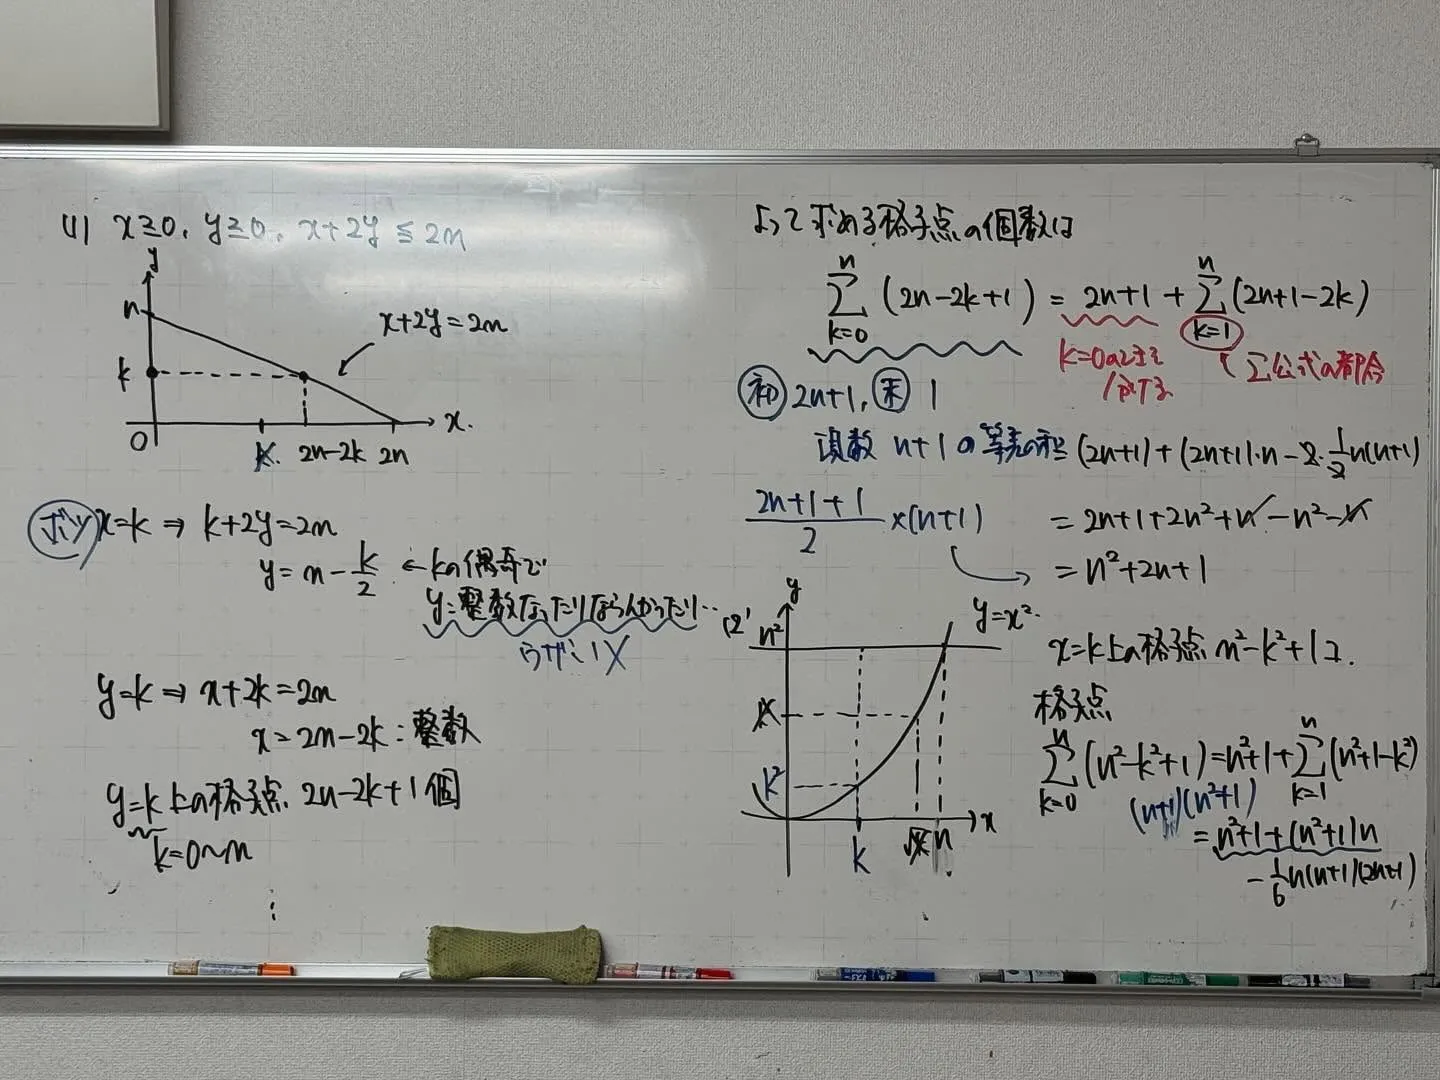 (1) x≧0, y≧0, x+2y≦2n
y
n
x+2y=2n
k
x.
O
k. 2n-2k 2n
ボツ x=k ⇒ k+2y=2n
y=n-k/2 ←kの偶奇で
y=整数なったりならんかったり…
うざい X
y=k ⇒ x+2k=2n
x=2n-2k : 整数
y=k上の格子点、2n-2k+1個
k=0~n
⋮
よって求める格子点の個数は
Σ_{k=0}^{n} (2n-2k+1) = 2n+1 + Σ_{k=1}^{n} (2n+1-2k)
k=0のときを
Σ公式の都合
初 2n+1, 末 1
項数 n+1の等差の和
(2n+1)+(2n+1)·n-2·1/2 n(n+1)
(2n+1+1)/2 ×(n+1)
=2n+1+2n²+n-n²-n
=n²+2n+1
(2)
y
y=x²
n²
k
k²
x
k √k n
x=k上の格子点 n²-k²+1コ.
格子点
Σ_{k=0}^{n} (n²-k²+1)=n²+1+Σ_{k=1}^{n} (n²+1-k²)
(n+1)(n²+1)
=n²+1+(n²+1)n
-1/6 n(n+1)(2n+1)